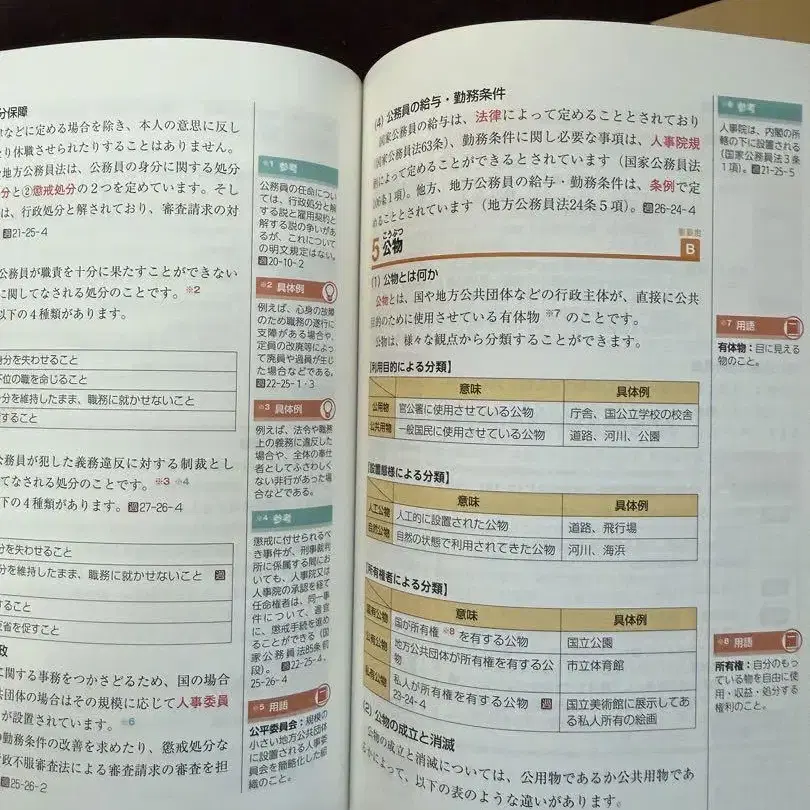 分保障
などに定める場合を除き、本人の意思に反し
り休職させられたりすることはありません。
地方公務員法は、公務員の身分に関する処分
分と②懲戒処分の2つを定めています。そし
は、行政処分と解されており、審査請求の対
過21-25-4
公務員が職責を十分に果たすことができない
に関してなされる処分のことです。※2
以下の4種類があります。
身分を失わせること
下位の職を命じること
分を維持したまま、職務に就かせないこと
すること
公務員が犯した義務違反に対する制裁とし
てなされる処分のことです。※3 ※4
下の4種類があります。過27-26-4
分を失わせること
分を維持したまま、職務に就かせないこと 過
すること
反省を促すこと
政
に関する事務をつかさどるため、国の場合
共団体の場合はその規模に応じて人事委員
が設置されています。※6
勤務条件の改善を求めたり、懲戒処分な
政不服審査法による審査請求の審査を担
過25-26-2
※1 参考
公務員の任命につい
ては、行政処分と解
する説と雇用契約と
解する説の争いがあ
るが、これについて
の明文規定はない。
過20-10-2
※2 具体例
例えば、心身の故障
のため職務の遂行に
支障がある場合や、
定員の改廃等によっ
て廃員や過員が生じ
た場合などである。
過22-25-1・3
※3 具体例
例えば、法令や職務
上の義務に違反した
場合や、全体の奉仕
者としてふさわしく
ない非行があった場
合などである。
※4 参考
懲戒に付せられるべ
き事件が、刑事裁判
所に係属する間にお
いても、人事院又は
人事院の承認を経て
任命権者は、同一事
件について、適宜
に、懲戒手続を進め
ることができる（国
家公務員法85条前
段）。過22-25-4、
25-26-4
※5 用語
公平委員会：規模の
小さい地方公共団体
に設置される人事委
員会を簡略化した組
織のこと。
(4) 公務員の給与・勤務条件
国家公務員の給与は、法律によって定めることとされており
（国家公務員法63条）、勤務条件に関し必要な事項は、人事院規
則によって定めることができるとされています（国家公務員法
106条1項）。他方、地方公務員の給与・勤務条件は、条例で定
めることとされています（地方公務員法24条5項）。過26-24-4
こうぶつ
5 公物
重要度
B
(1) 公物とは何か
公物とは、国や地方公共団体などの行政主体が、直接に公共
目的のために使用させている有体物※7のことです。
公物は、様々な観点から分類することができます。
【利用目的による分類】
意味 具体例
公用物 官公署に使用させている公物 庁舎、国公立学校の校舎
公共用物 一般国民に使用させている公物 道路、河川、公園
【設置態様による分類】
意味 具体例
人工公物 人工的に設置された公物 道路、飛行場
自然公物 自然の状態で利用されてきた公物 河川、海浜
【所有権者による分類】
意味 具体例
国有公物 国が所有権※8を有する公物 国立公園
公有公物 地方公共団体が所有権を有する公
物 市立体育館
私有公物 私人が所有権を有する公物 過
23-24-4 国立美術館に展示してあ
る私人所有の絵画
(2) 公物の成立と消滅
公物の成立と消滅については、公用物であるか公共用物であ
るかによって、以下の表のような違いがあります。
※6 参考
人事院は、内閣の所
轄の下に設置される
（国家公務員法3条
1項）。過21-25-5
※7 用語
有体物：目に見える
物のこと。
※8 用語
所有権：自分のもっ
ている物を自由に使
用・収益・処分する
権利のこと。